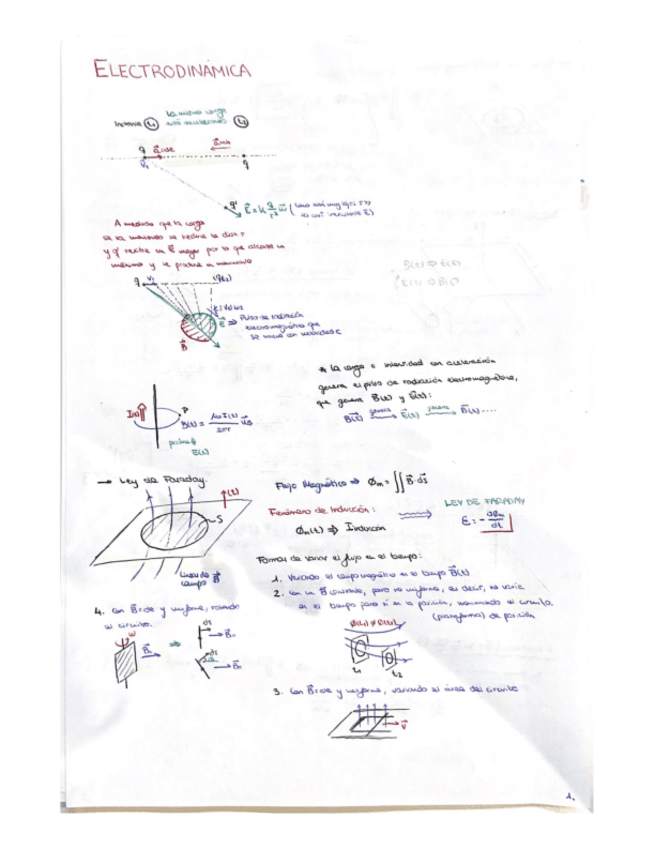 ELECTRODINÁMICA
La misma carga
Instante t₁ está acelerándose t₂
q a⃗ = cte a⃗ = cte
V₁ q
q' E⃗ = k q/r² u⃗r
A medida que la carga
se va moviendo se reduce la dist r
y q' recibe un E⃗ mayor por lo que alcanza un
máximo y se produce un
q V₁ q(t₂)
E⃗ ⇒ Pulso de radiación
electromagnética que
se mueve con velocidad c
B⃗
* La carga o intensidad con aceleración
genera el pulso de radiación electromagnética,
que genera B⃗(t) y E⃗(t):
B⃗(t) genera E⃗(t) genera B⃗(t) ....
I(t) P
B(t) = μ₀I(t)/2πr u⃗θ
produce
E(t)
→ Ley de Faraday:
I(t)
S
Líneas de
campo B⃗
Flujo Magnético ⇒ Φm = ∬ B⃗·ds⃗
Fenómeno de Inducción:
Φm(t) ⇒ Inducción
LEY DE FARADAY
ε = - dΦm/dt
Formas de variar el flujo en el tiempo:
1. Variando el campo magnético en el tiempo B⃗(t)
2. Con un B⃗ constante, pero no uniforme, es decir, no varía
en el tiempo pero sí en la posición, moviendo el circuito.
(cambiando) de posición
Φ(t₁) ≠ Φ(t₂)
t₁ t₂
3. Con B⃗ = cte y uniforme, variando el área del circuito
v⃗
4. Con B⃗ = cte y uniforme, rotando
el circuito.
ω
B⃗o ⇒
ds
B⃗o
ds
B⃗o
1.